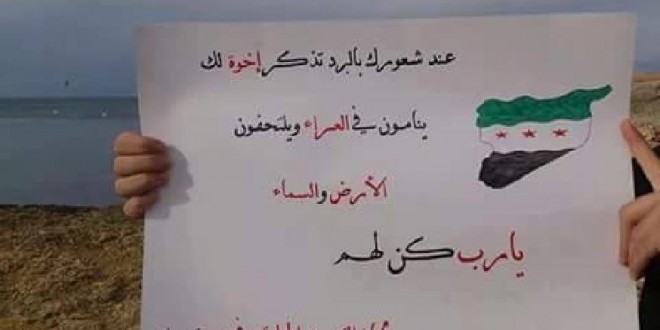 عند شعورك بالبرد تذكر إخوة لك
ينامون في العراء ويلتحفون
الأرض والسماء
يا رب كن لهم